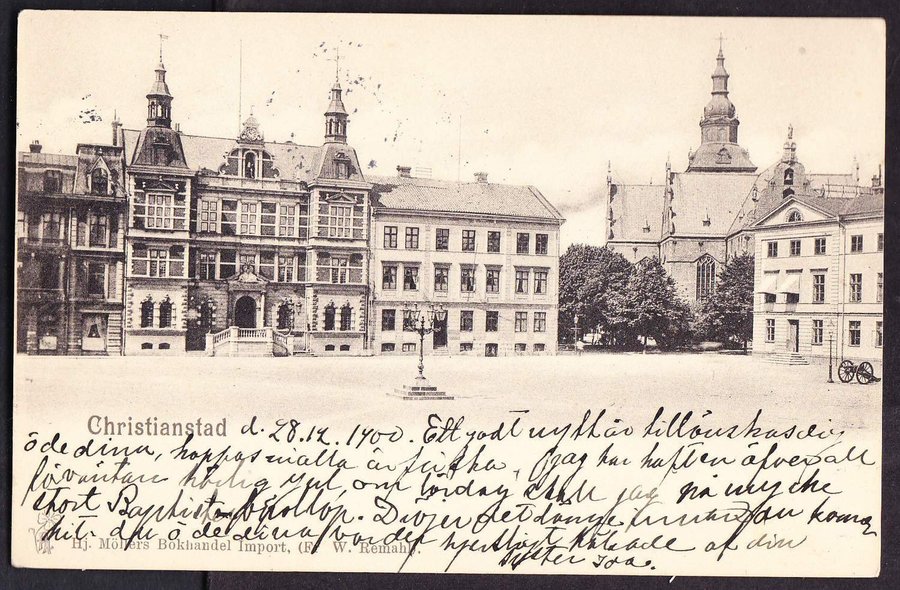 Christianstad d. 28.12. 1900. Ett godt nytt år tillönskas dig
ö de dina, hoppas alla är friska, jag har haft en öfver allt
förväntan rolig jul, om lördag skall jag på mycke
stort Baptist bröllop. Dröjer det länge innan du kommer
hit. du ö de dina varder hjertligt hälsade af din
syster
Hj. Möllers Bokhandel Import, (Fr. W. Remahl).